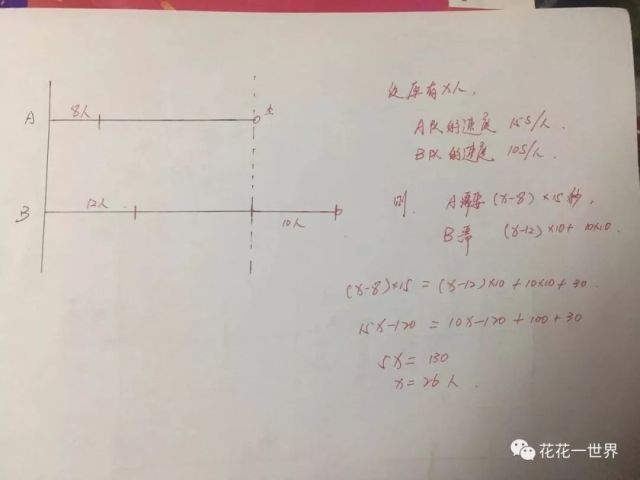 8人
A
太
12人
B
10人
设原有x人,
A队的速度 15S/人.
B队的速度 10S/人.
则. A需要 (x-8)×15秒,
B需 (x-12)×10+10×10.
(x-8)×15 = (x-12)×10+10×10+30.
15x-120 = 10x-120+100+30
5x = 130
x = 26人.
花花一世界